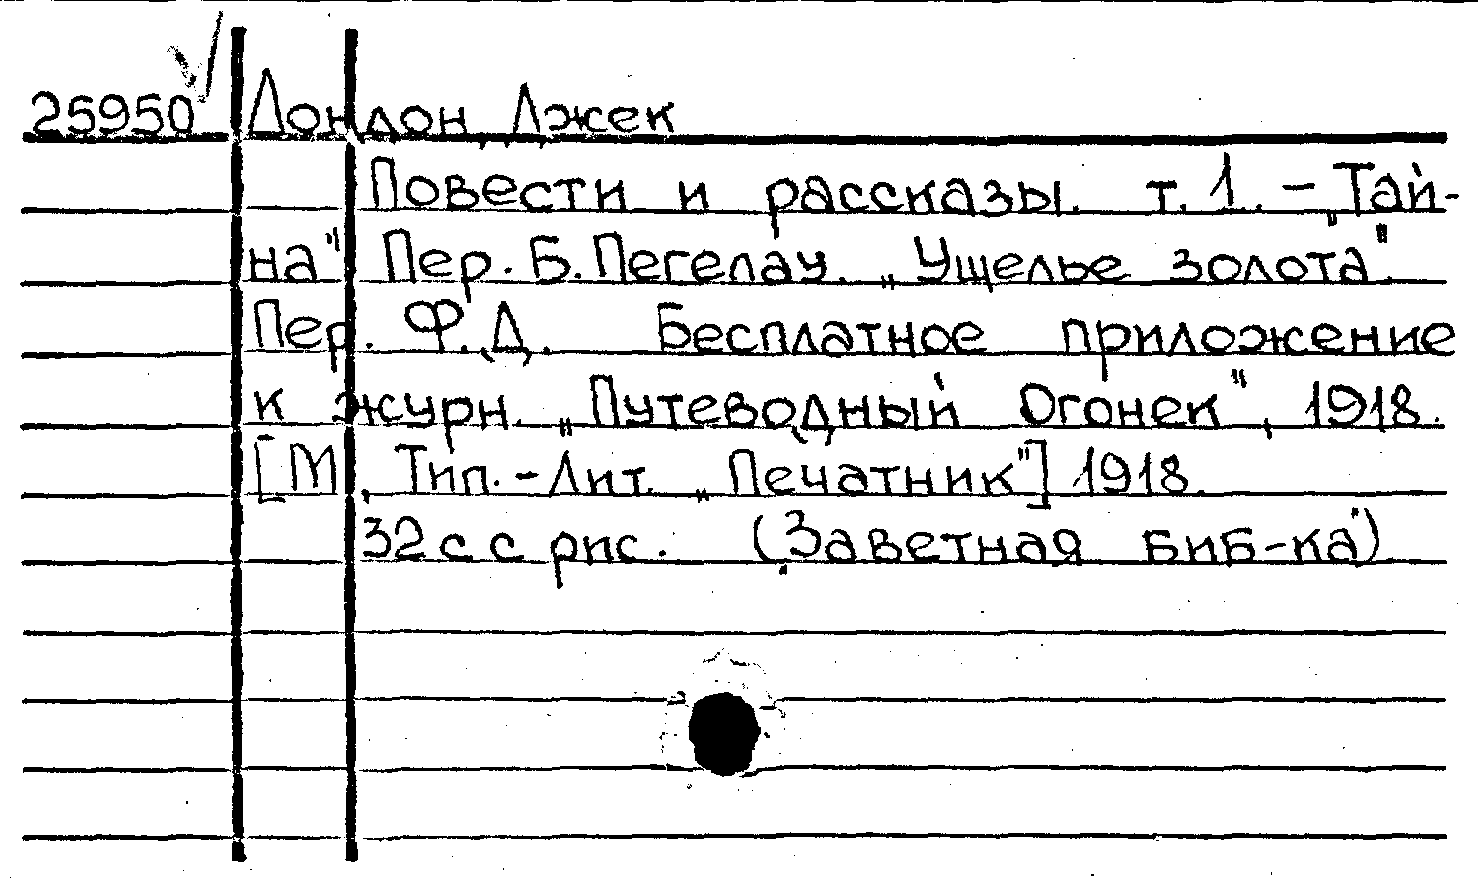 25950 Лондон, Джек
Повести и рассказы. т. 1. – „Тай-
на" Пер. Б. Пегелау. „Ущелье золота".
Пер. Ф. Д. Бесплатное приложение
к журн. „Путеводный Огонек", 1918.
[М., Тип.-Лит. „Печатник"] 1918.
32 с с рис. („Заветная биб-ка")